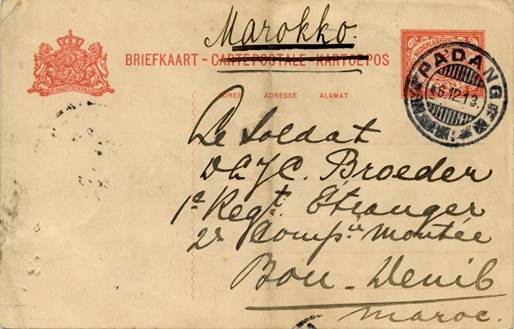 Marokko.
BRIEFKAART - CARTEPOSTALE - KARTOEPOS
ADRES ADRESSE ALAMAT
PADANG
6.12.13.
Le Soldat
Broeder
1e Regt. Etranger
2e Compie Montée
Bou-Denib
Maroc.